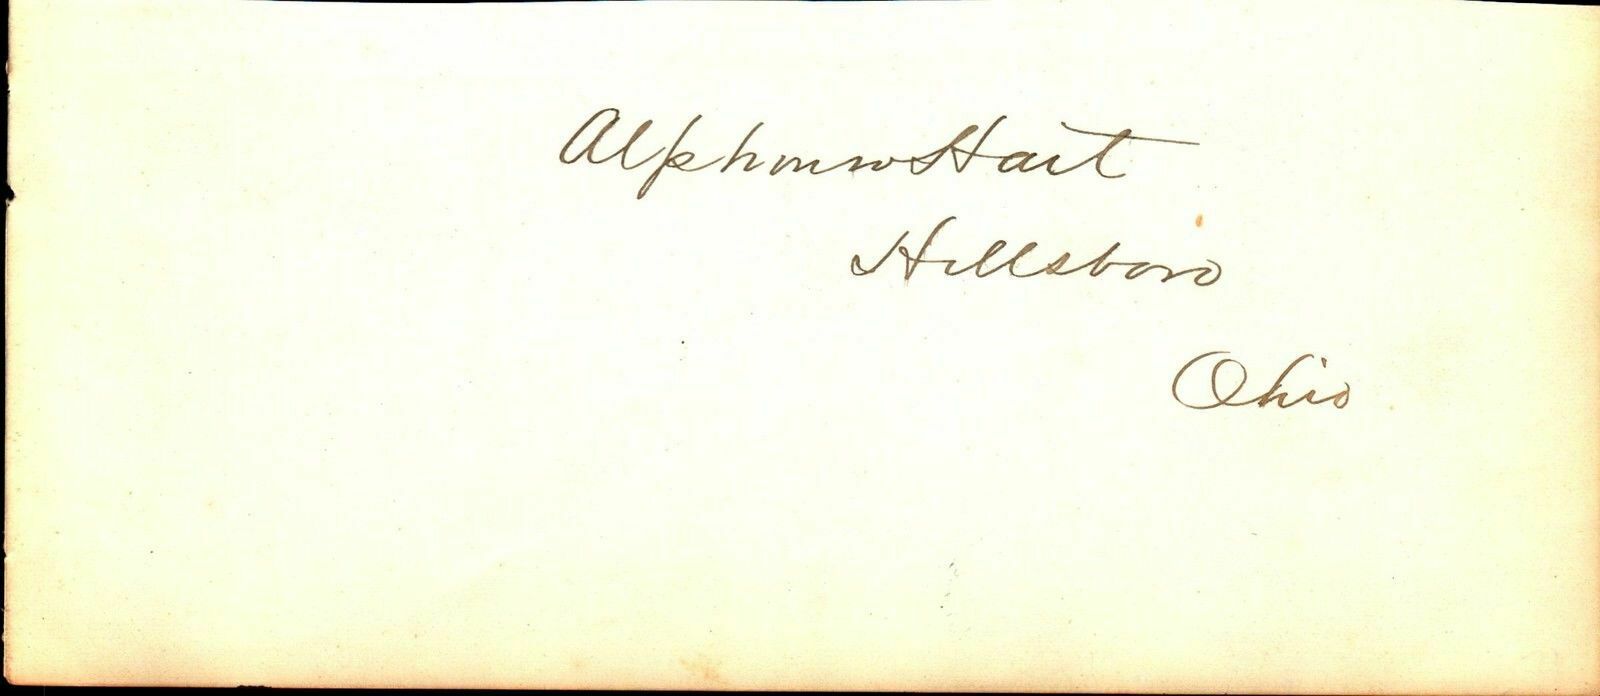 Alphonso Hart
Hillsboro
Ohio